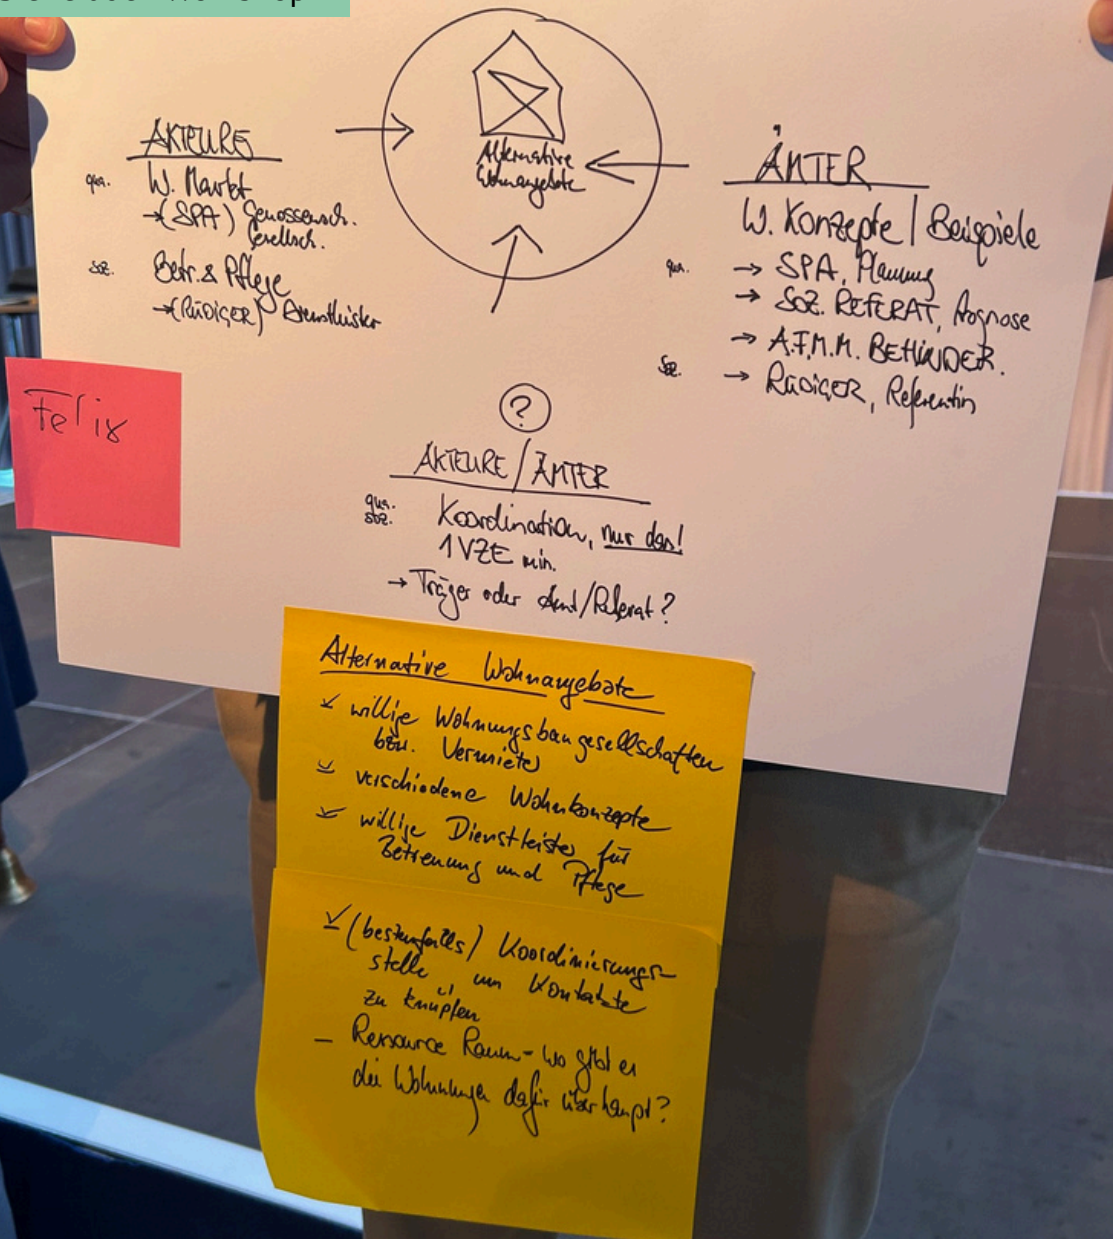 Alternative
Wohnangebote
AKTEURE
qua. W. Markt
→(SPA) Genossensch.
Gesellsch.
soz. Betr. & Pflege
→(RÜDIGER) Dienstleister
ÄMTER
W. Konzepte / Beispiele
qua. → SPA, Planung
→ SOZ. REFERAT, Prognose
→ A.F.M.M. BEHINDER.
Soz. → RÜDIGER, Referentin
Felix
?
AKTEURE / ÄMTER
qua.
soz.
Koordination, nur das!
1 VZE min.
→ Träger oder Amt/Referat?
Alternative Wohnangebote
willige Wohnungsbaugesellschaften
bzw. Vermieter
verschiedene Wohnkonzepte
willige Dienstleister für
Betreuung und Pflege
(bestenfalls) Koordinierungs-
stelle um Kontakte
zu knüpfen
– Ressource Raum - wo gibt es
die Wohnungen dafür überhaupt?